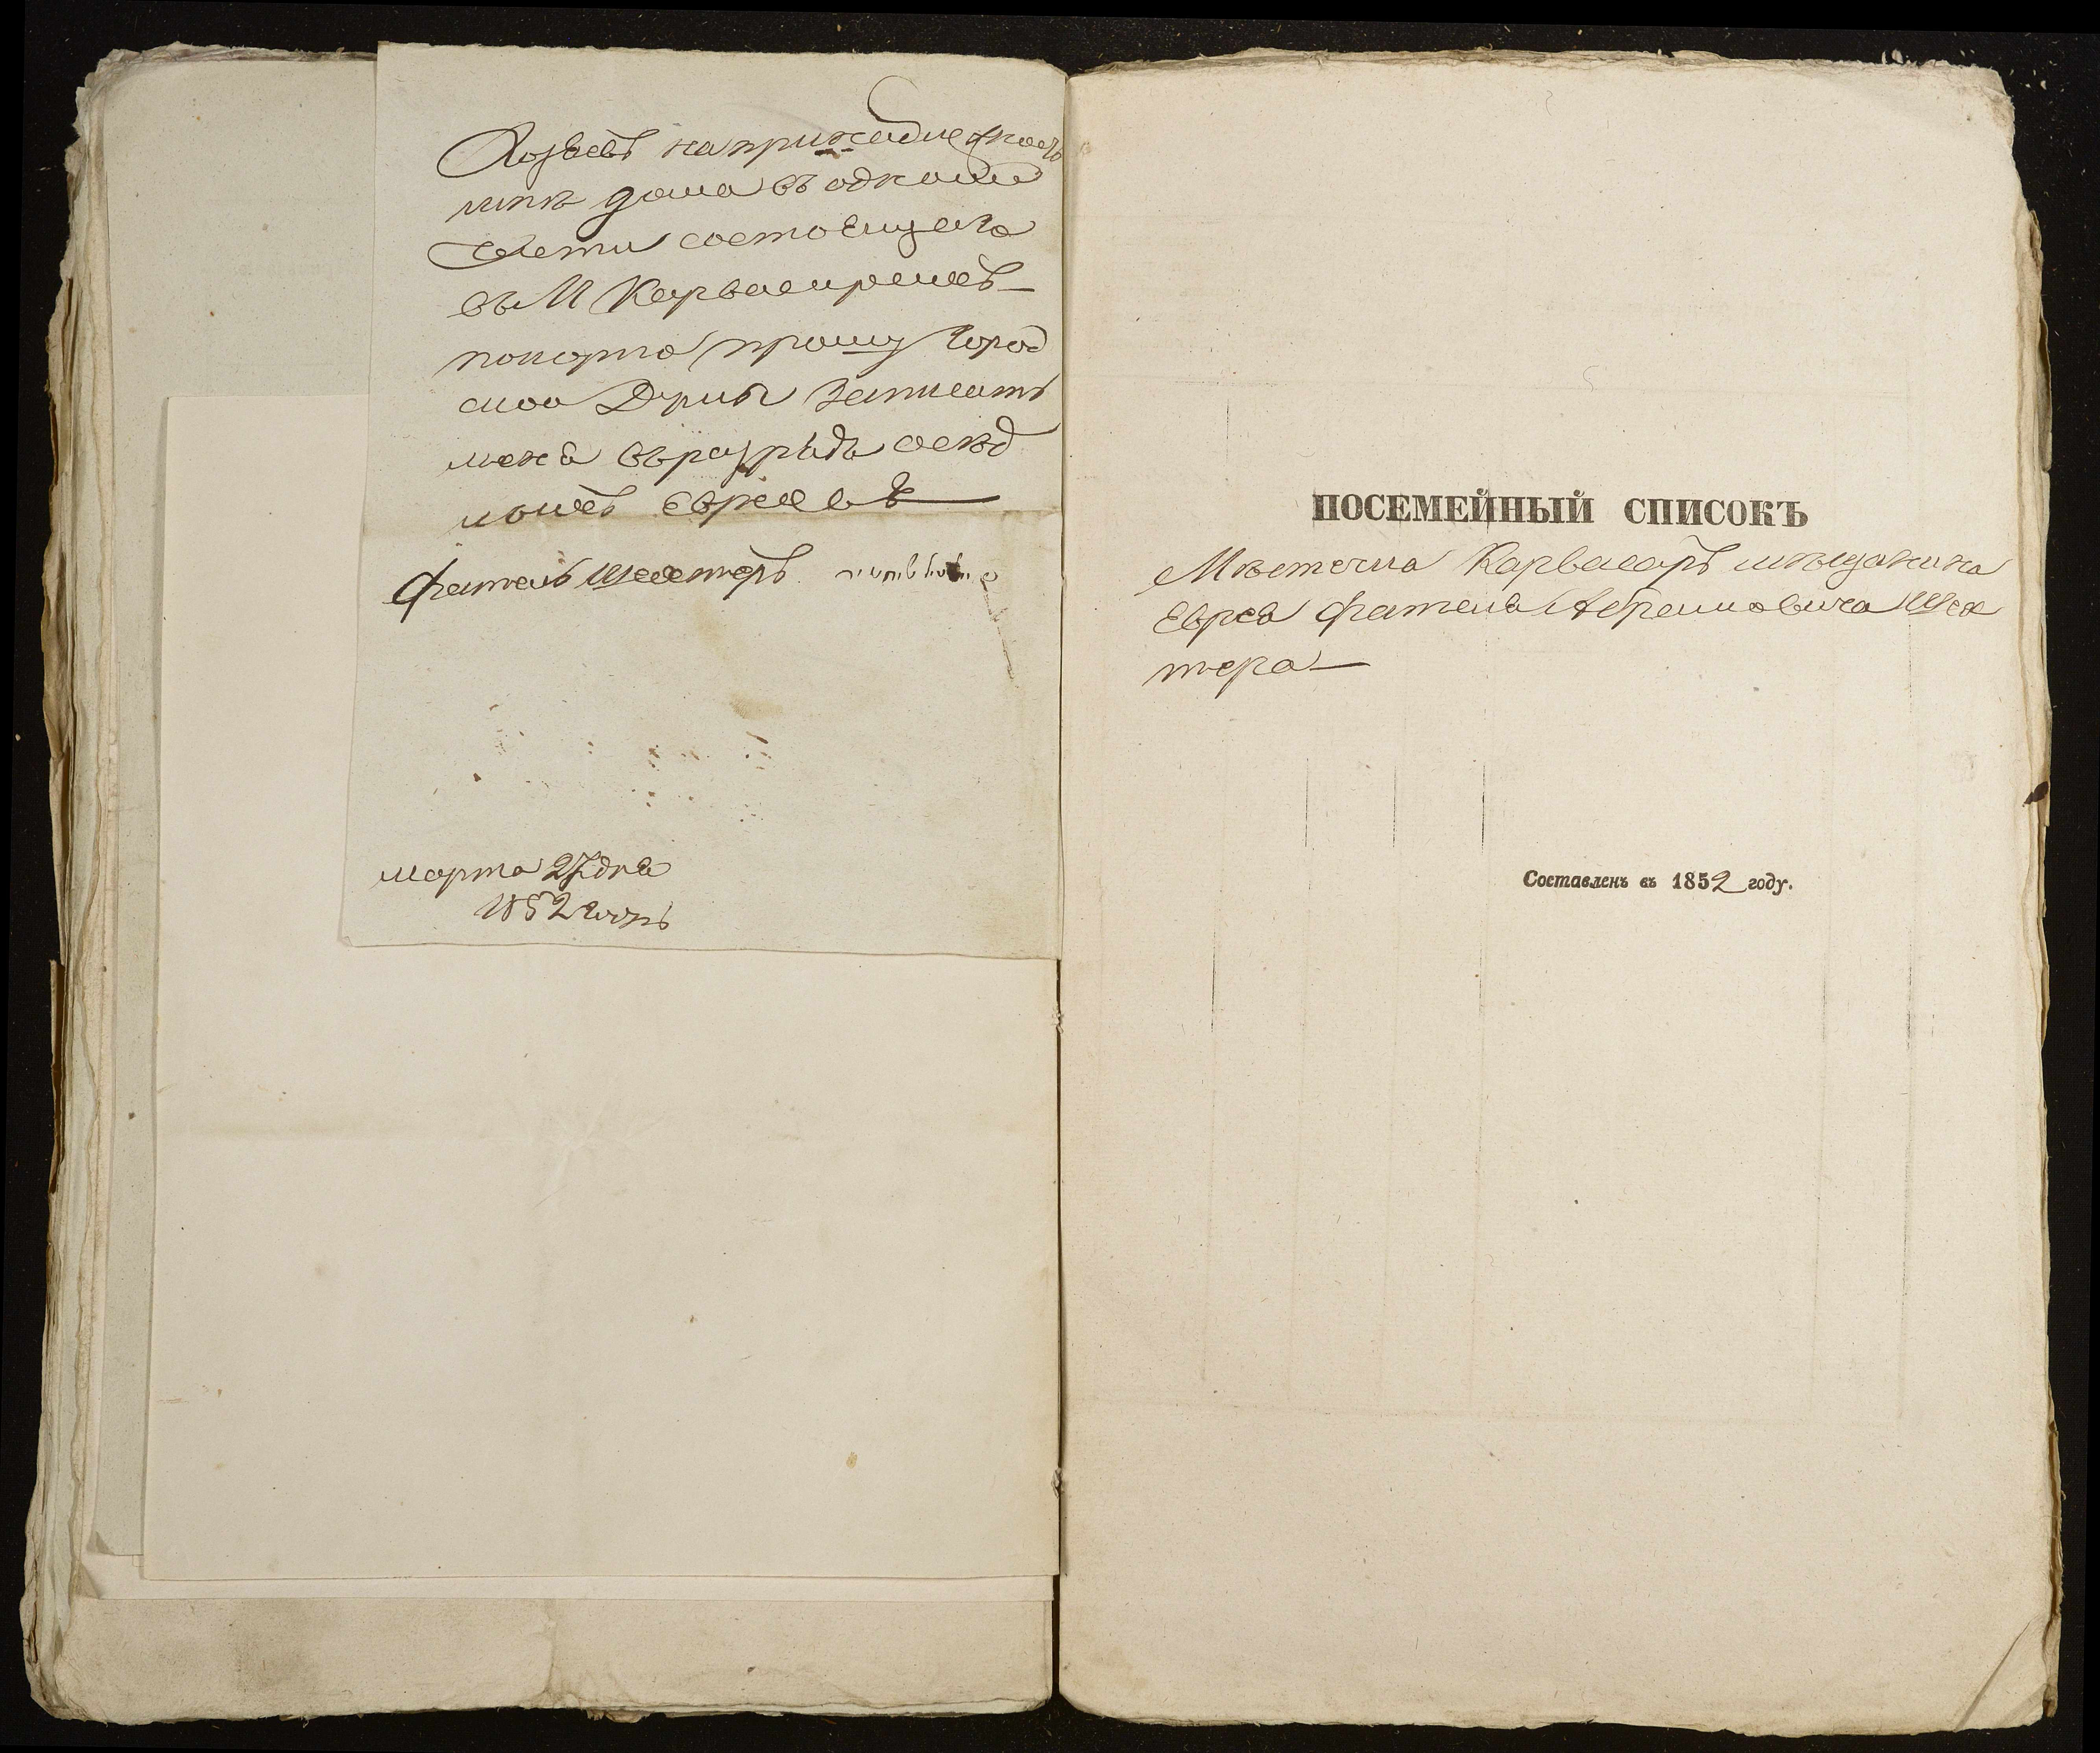 мнѣ дома въ одной
части состоящаго
въ М Карвасирахъ
покорно прошу Город
скую Думу записать
меня въ разрядъ осѣд
лыхъ Евреевъ
Фатель Шехтеръ
марта 27 дня
1852 года
ПОСЕМЕЙНЫЙ СПИСОКЪ
Мѣстечка Карвасаръ мѣщанина
Еврея Фателя Абрамовича Шех
тера
Составленъ въ 1852 году.